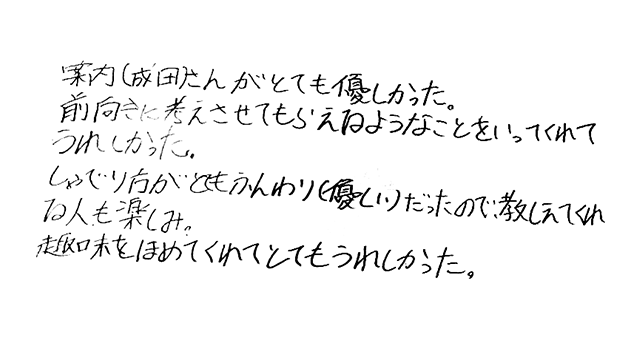 案内(成田)さんがとても優しかった。
前向きに考えさせてもらえるようなことをいってくれて
うれしかった。
しゃべり方がともふんわり(優しい)だったので、教しえてくれ
る人も楽しみ。
趣味をほめてくれてとてもうれしかった。